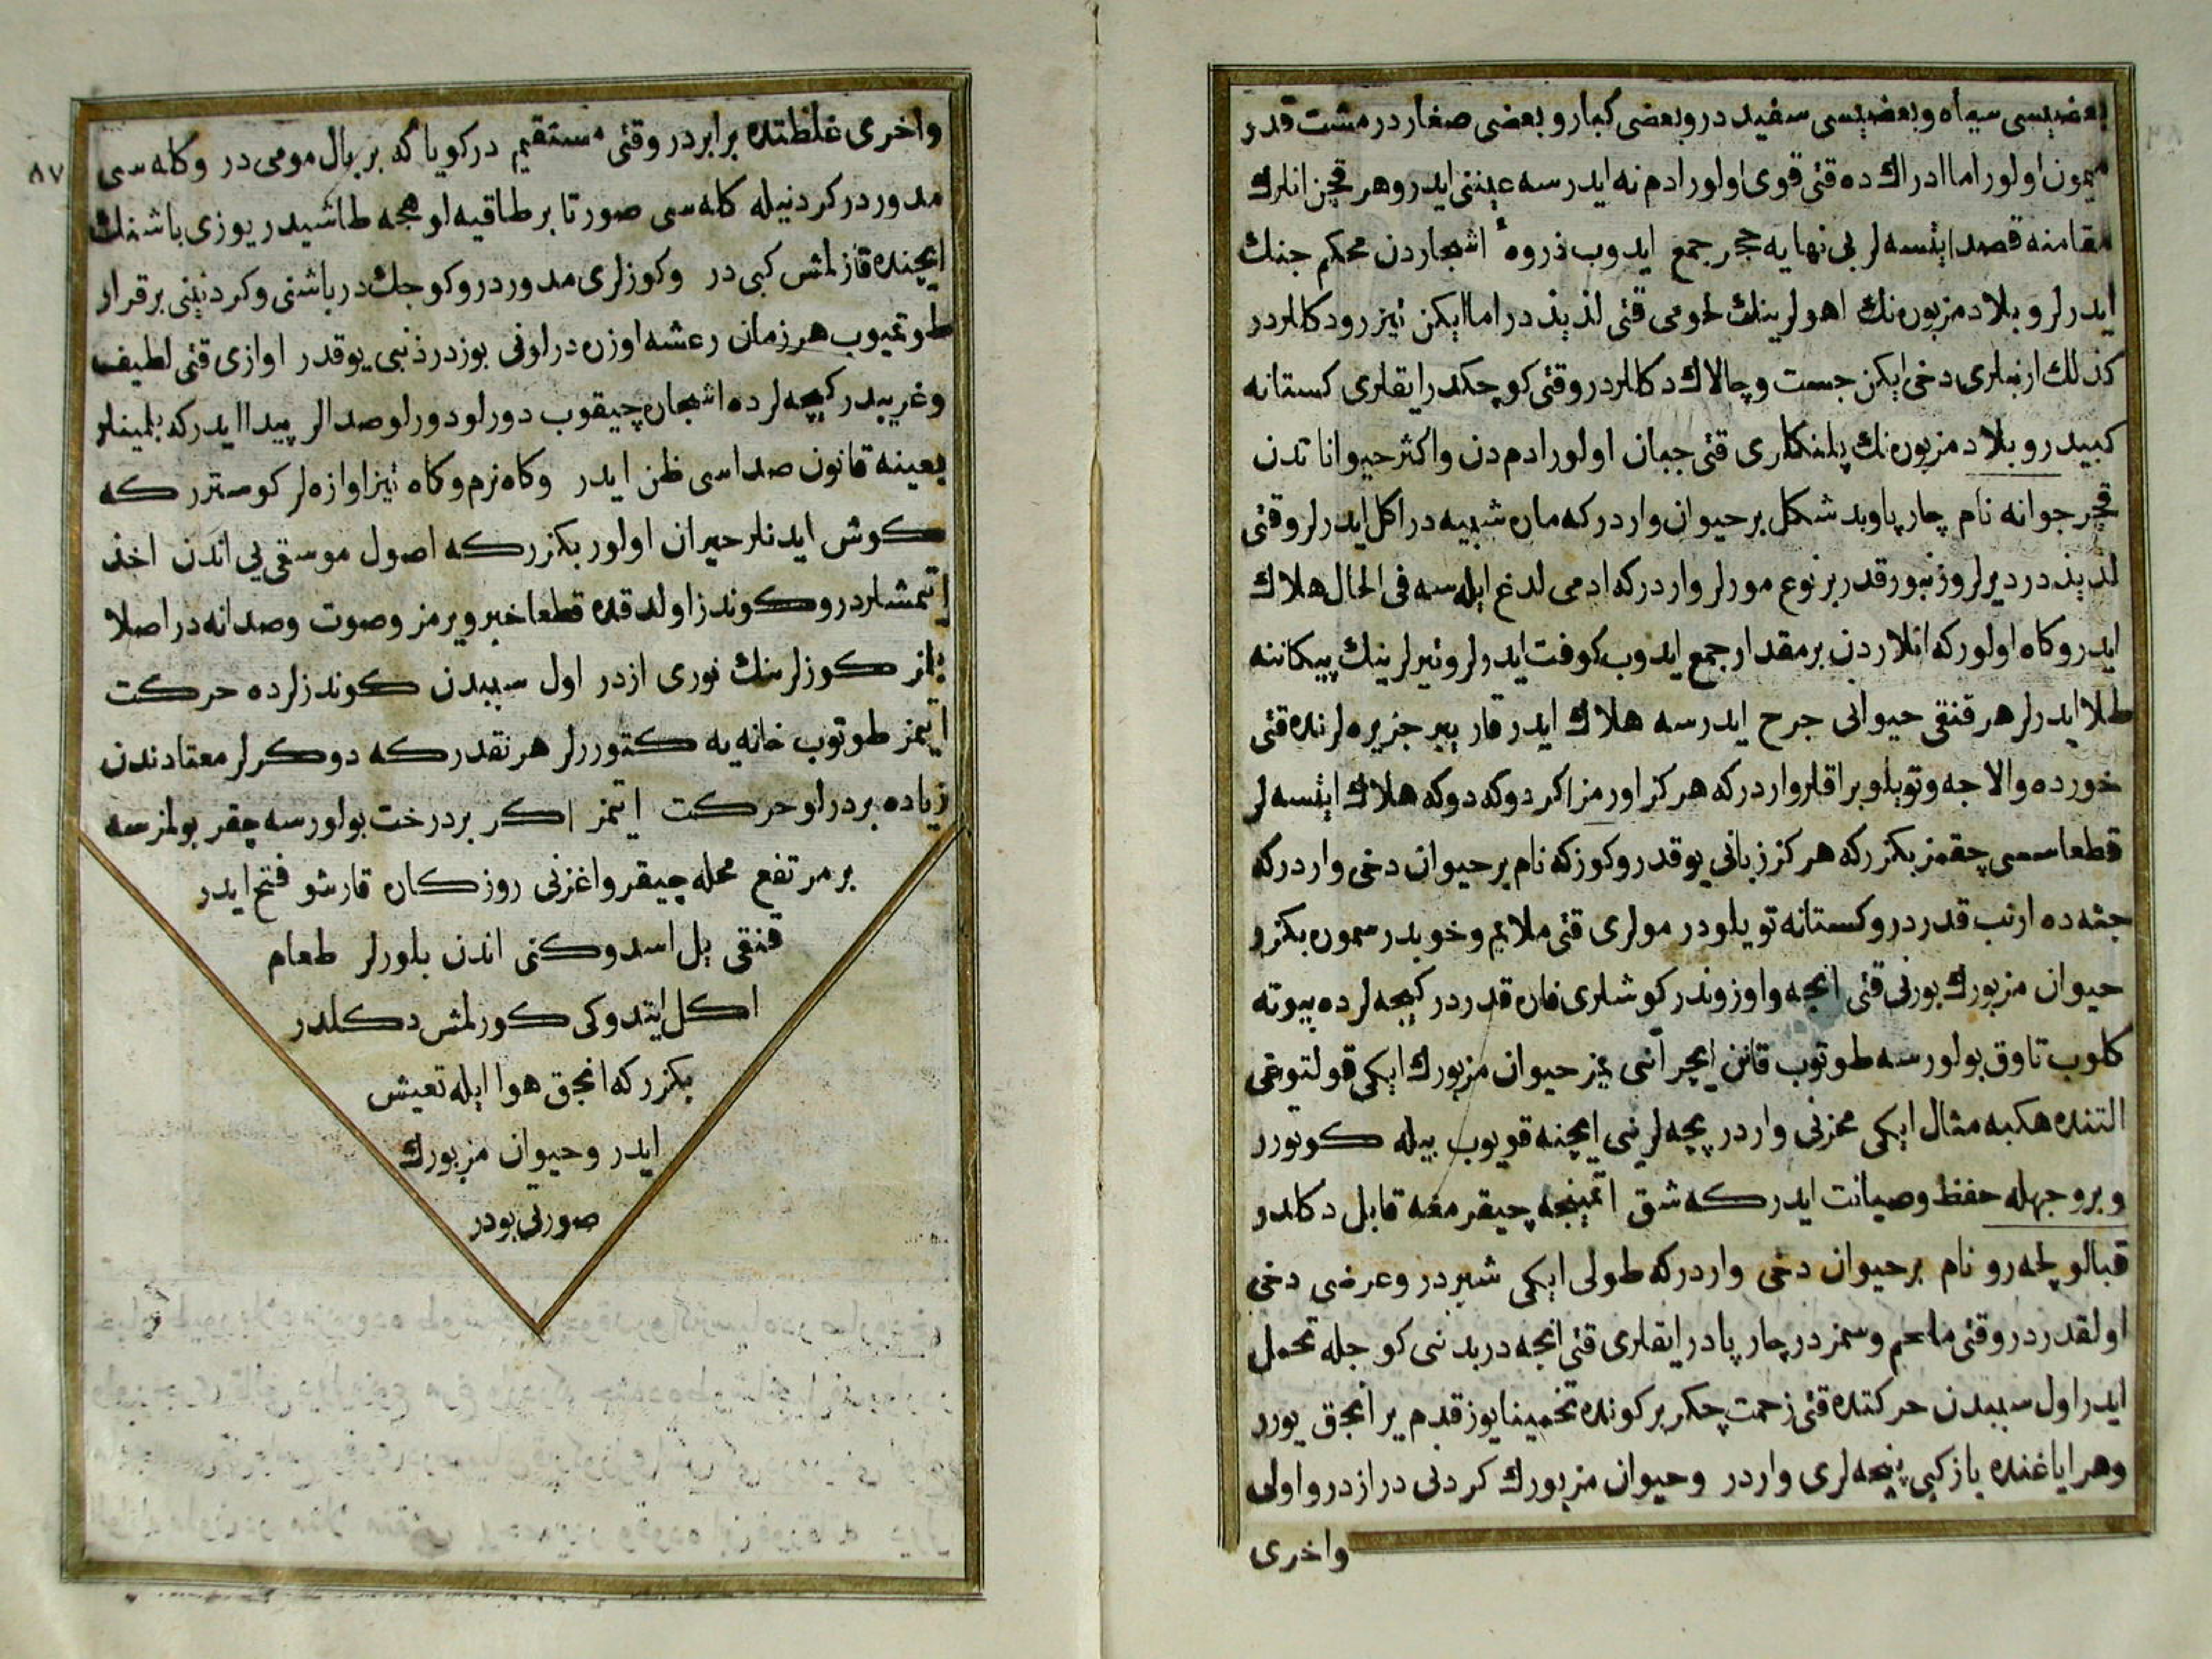 بعضیسی سیاه و بعضیسی سفیددر و بعضی کبار و بعضی صغاردر مشت قدر
میمون اولور اما ادراك ده قتی قوی اولور ادم نه ایدرسه عیننی ایدر و هر قچن انلرك
مقامنه قصد ایتسه لر بی نهایه حجر جمع ایدوب ذروهٔ اشجاردن محکم جنك
ایدرلر و بلاد مزبوره نك اهولرینك لحومی قتی لذیذدر اما ایکن تیزرو دکللردر
کذلك ارنبلری دخی ایکن جست و چالاك دکللردر و قتی کوچکدر ایقلری کستانه
کبیدر و بلاد مزبوره نك پلنکلری قتی جبان اولور ادم دن و اکثر حیواناتدن
قچر جوانه نام چارپا و بد شکل بر حیوان واردر که ماره شبیه در اکل ایدرلر و قتی
لذیذدر دیرلر و زنبور قدر بر نوع مورلر واردر که ادمی لدغ ایله سه فی الحال هلاك
ایدر و کاه اولور که انلاردن بر مقدار جمع ایدوب کوفت ایدرلر و تیرلرینك پیکاننه
طلا ایدرلر هر قنقی حیوانی جرح ایدرسه هلاك ایدر قاریبر جزیره لرنده قتی
خورده و الاجه و تویلو براقلر واردر که هرکز اورمز اکر دوکه دوکه هلاك ایتسه لر
قطعا سسی چقمز بکزر که هرکز زبانی یوقدر و کوزکه نام بر حیوان دخی واردر که
جثه ده ارنب قدردر و کستانه تویلودر مولری قتی ملایم و خوبدر سموره بکزر
حیوان مزبورك بورنی قتی انجه و اوزوندر کوشلری فاره قدردر کیجه لرده بیوته
کلوب تاوق بولورسه طوتوب قانن ایچر آتنی یمز حیوان مزبورك ایکی قولتوغی
التنده هکبه مثال ایکی مخزنی واردر پچه لرینی ایچنه قویوب بیله کوتورر
و بر وجهله حفظ و صیانت ایدر که شق اتمینجه چیقرمغه قابل دکلدر
قبالو پلحه رو نام بر حیوان دخی واردر که طولی ایکی شبردر و عرضی دخی
اولقدردر و قتی ملحم و سمزدر چارپادر ایقلری قتی انجه در بدننی کوجله تحمل
ایدر اول سببدن حرکتده قتی زحمت چکر بر کونده تخمینا یوز قدم یر انجق یورر
و هر ایاغنده باز کبی پنجه لری واردر و حیوان مزبورك کردنی درازدر و اولی
واخری
٨٧
واخری غلظتده برابردر و قتی مستقیم در کویا که بر بال مومی در و کله سی
مدوردر کردنیله کله سی صورتا بر طاقیه او همجه طاشیدر یوزی باشنك
ایچنده قازلمش کبی در و کوزلری مدوردر و کوجك در باشنی و کردنینی برقرار
طوتمیوب هر زمان رعشه اوزره در لونی بوزدر ذنبی یوقدر اوازی قتی لطیف
و غریبدر کیجه لرده اشجاره چیقوب دورلو دورلو صدالر پیدا ایدر که بلمینلر
بعینه قانون صداسی ظن ایدر و کاه نرم و کاه تیز اوازه لر کوسترر که
کوش ایدنلر حیران اولور بکزر که اصول موسقی یی اندن اخذ
ایتمشلردر و کوندز اولدقده قطعا خبر ویرمز و صوت و صدا نه در اصلا
بلنمز کوزلرینك نوری ازدر اول سببدن کوندزلرده حرکت
ایتمز طوتوب خانه یه کتوررلر هر نقدر که دوکرلر معتادندن
زیاده بردرلو حرکت ایتمز اکر بر درخت بولورسه چقر بولمزسه
بر مرتفع محله چیقر و اغزنی روزکاره قارشو فتح ایدر
قنقی یل اسدوکنی اندن بلورلر طعام
اکل ایتدوکی کورلمش دکلدر
بکزر که انجق هوا ایله تعیش
ایدر و حیوان مزبورك
صورتی بودر